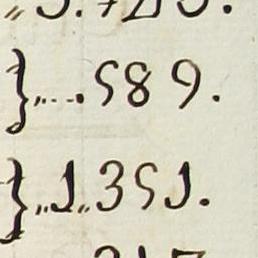 }„....589.
}„1„351.